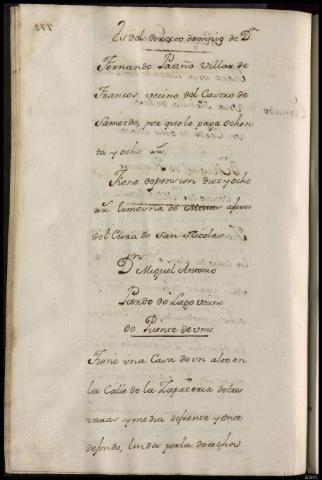 Es del directo dominio de Dn
Fernando Patiño Villar de
Francos vecino del Castro de
Samoedo, por que le paga ochen
ta y ocho rs.
Tiene depension diez y ocho
rs. limosna de Misas a favor
del Cura de San Nicolas
Dn. Miguel Antonio
Pardo de Lago vecino
de Puente de ume
Tiene una Casa de un alto en
la Calle de la Zapateria de tres
varas y media de frente y once
de fondo, linda por la derecha